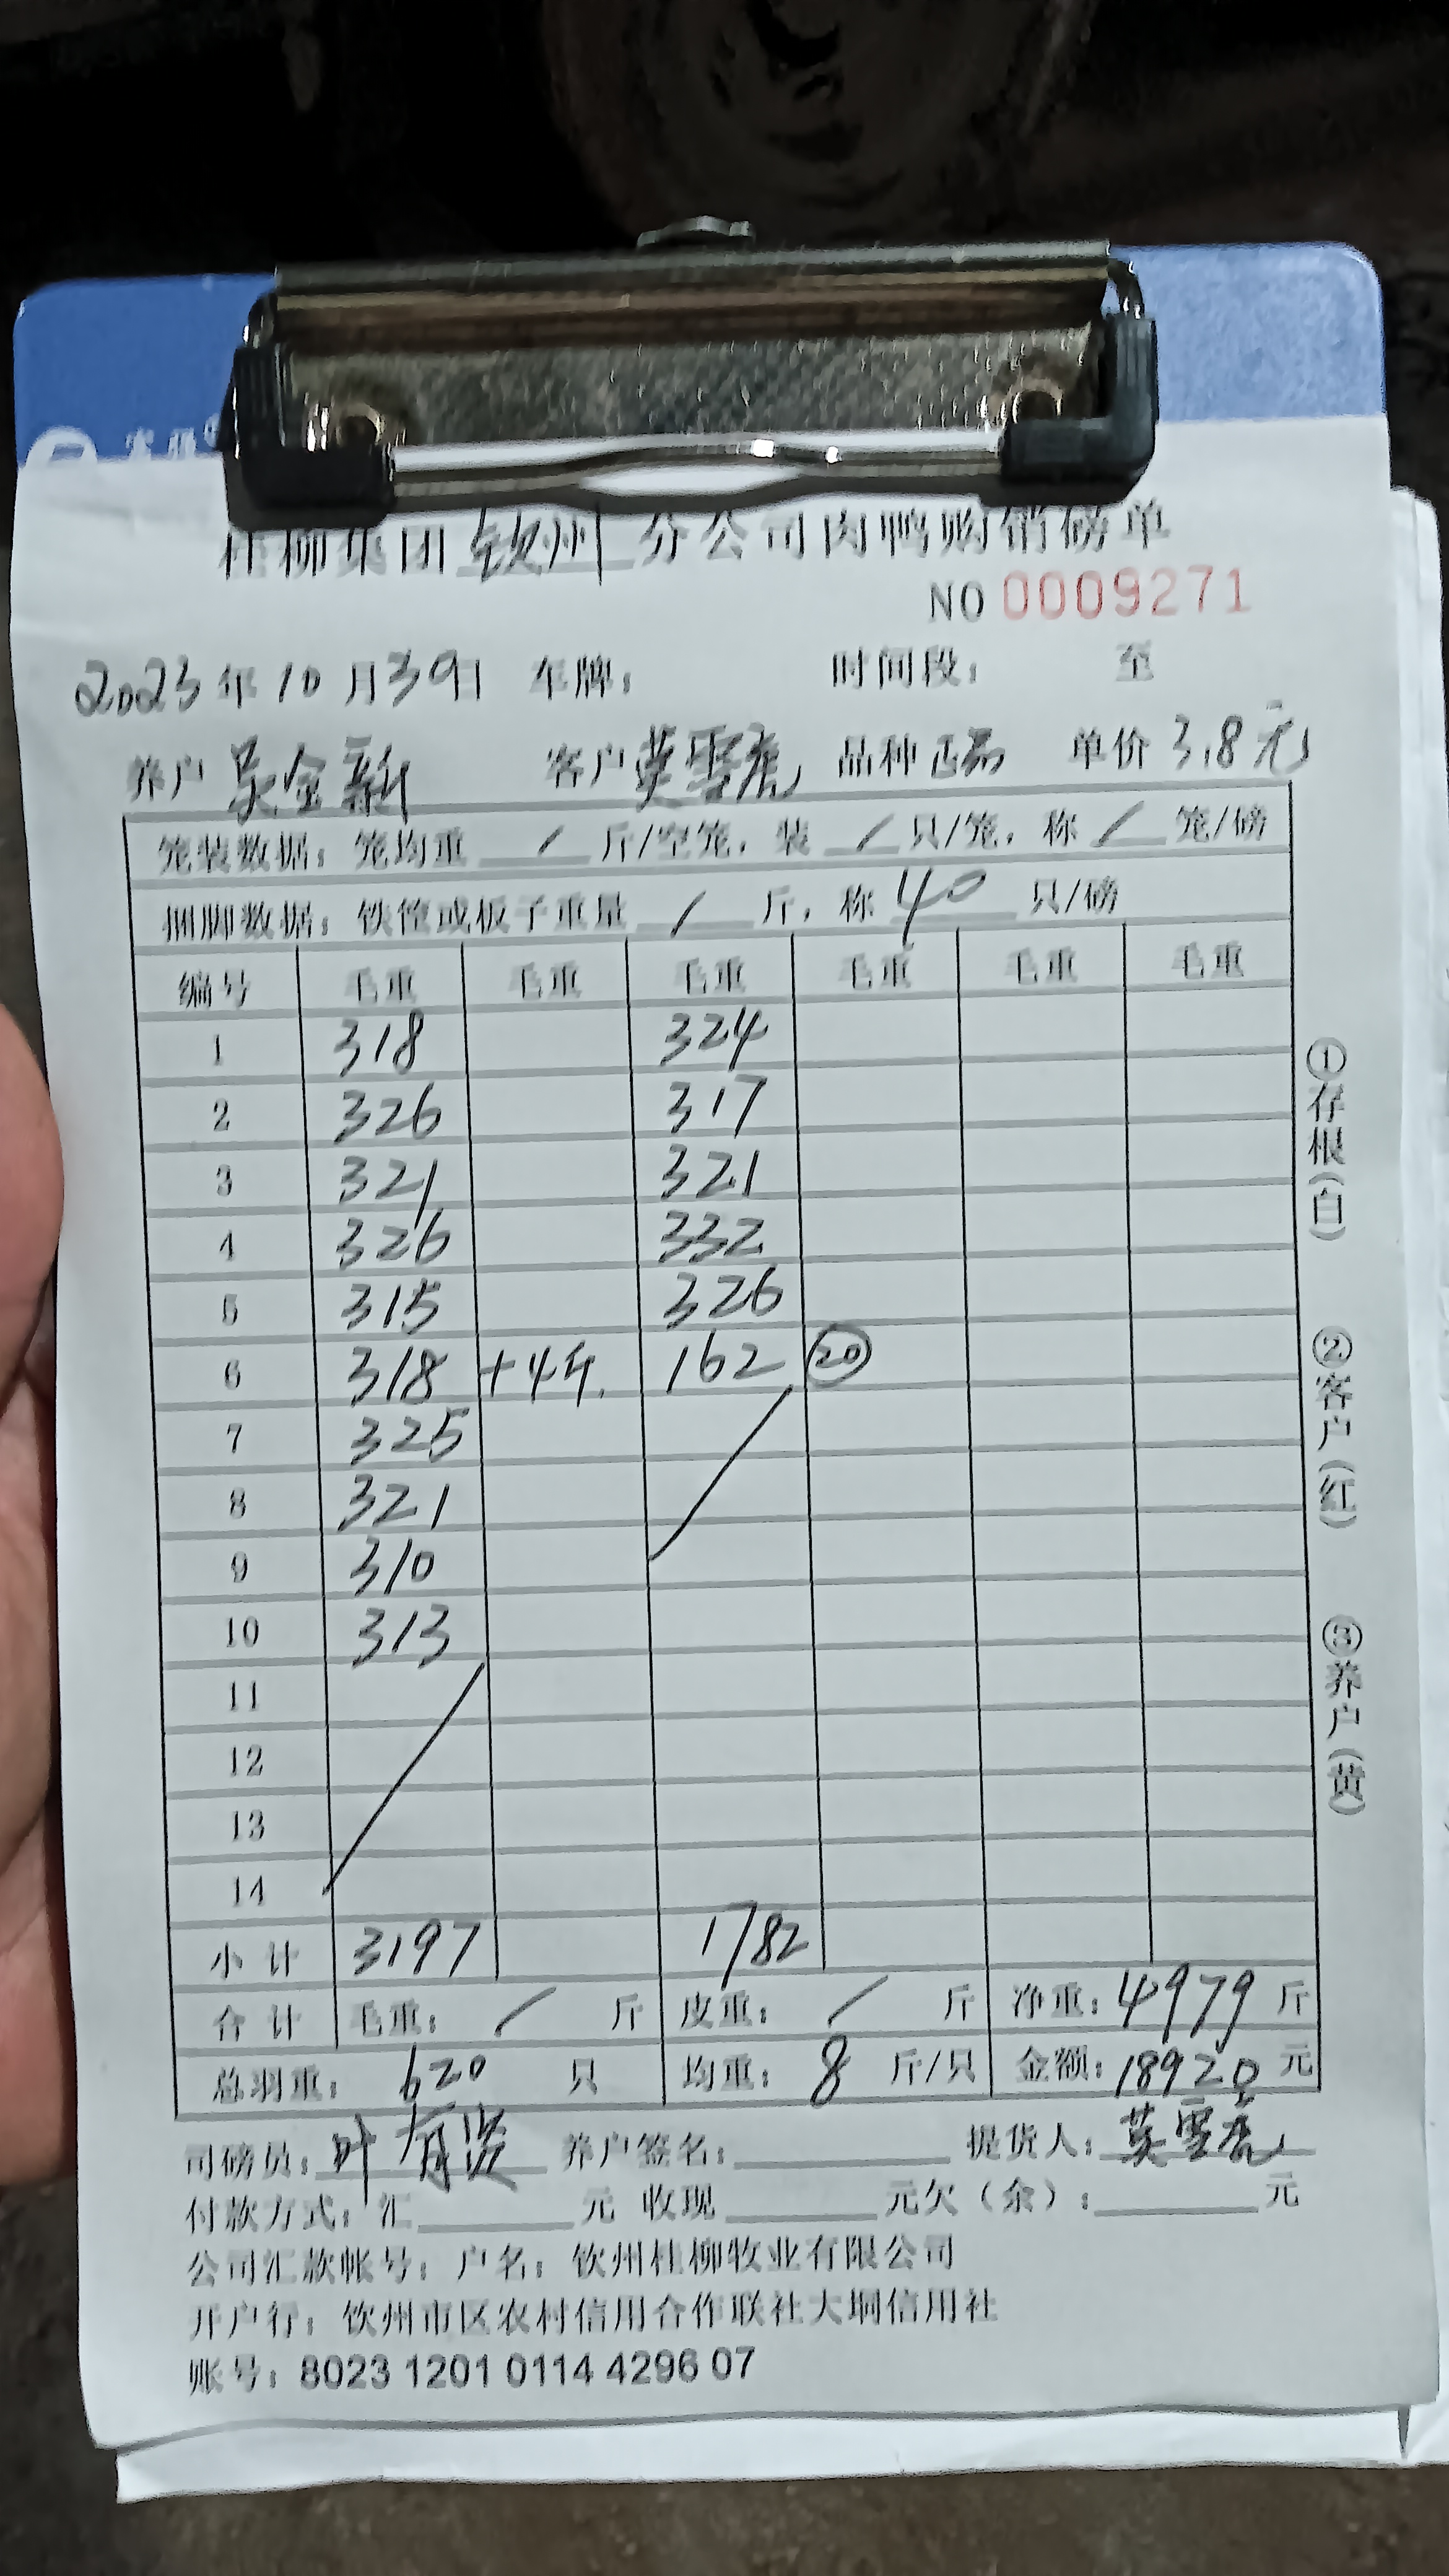 桂柳集团钦州分公司肉鸭购销磅单
NO 0009271
2023年10月30日 车牌: 时间段: 至
养户 吴金新 客户 莫雪彪 品种 正品 单价 3.8元
笼装数据: 笼均重 / 斤/空笼, 装 / 只/笼, 称 / 笼/磅
捆脚数据: 铁筐或板子重量 / 斤, 称 40 只/磅
编号 毛重 毛重 毛重 毛重 毛重 毛重
1 318 324
2 326 317
3 321 321
4 326 332
5 315 326
6 318 +4斤. 162 ⑳
7 325
8 321
9 310
10 313
11
12
13
14
小计 3197 1782
合计 毛重: / 斤 皮重: / 斤 净重: 4979 斤
总羽重: 620 只 均重: 8 斤/只 金额: 18920 元
司磅员: 叶有贤 养户签名: 提货人: 莫雪彪
付款方式: 汇 元 收现 元欠(余): 元
公司汇款帐号: 户名: 钦州桂柳牧业有限公司
开户行: 钦州市区农村信用合作联社大垌信用社
账号: 8023 1201 0114 4296 07
①存根(白)
②客户(红)
③养户(黄)